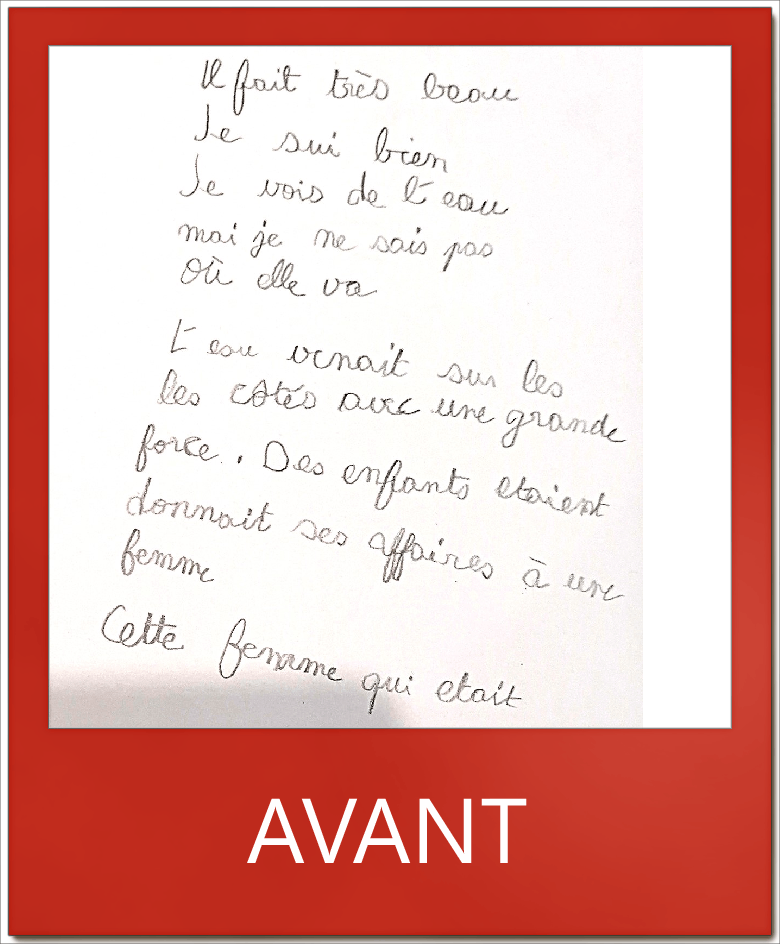 Il fait très beau
Je sui bien
Je vois de l'eau
mai je ne sais pas
Où elle va
L'eau venait sur les
les côtés avec une grande
force. Des enfants etaient
donnait ses affaires à une
femme
Cette femme qui etait
AVANT